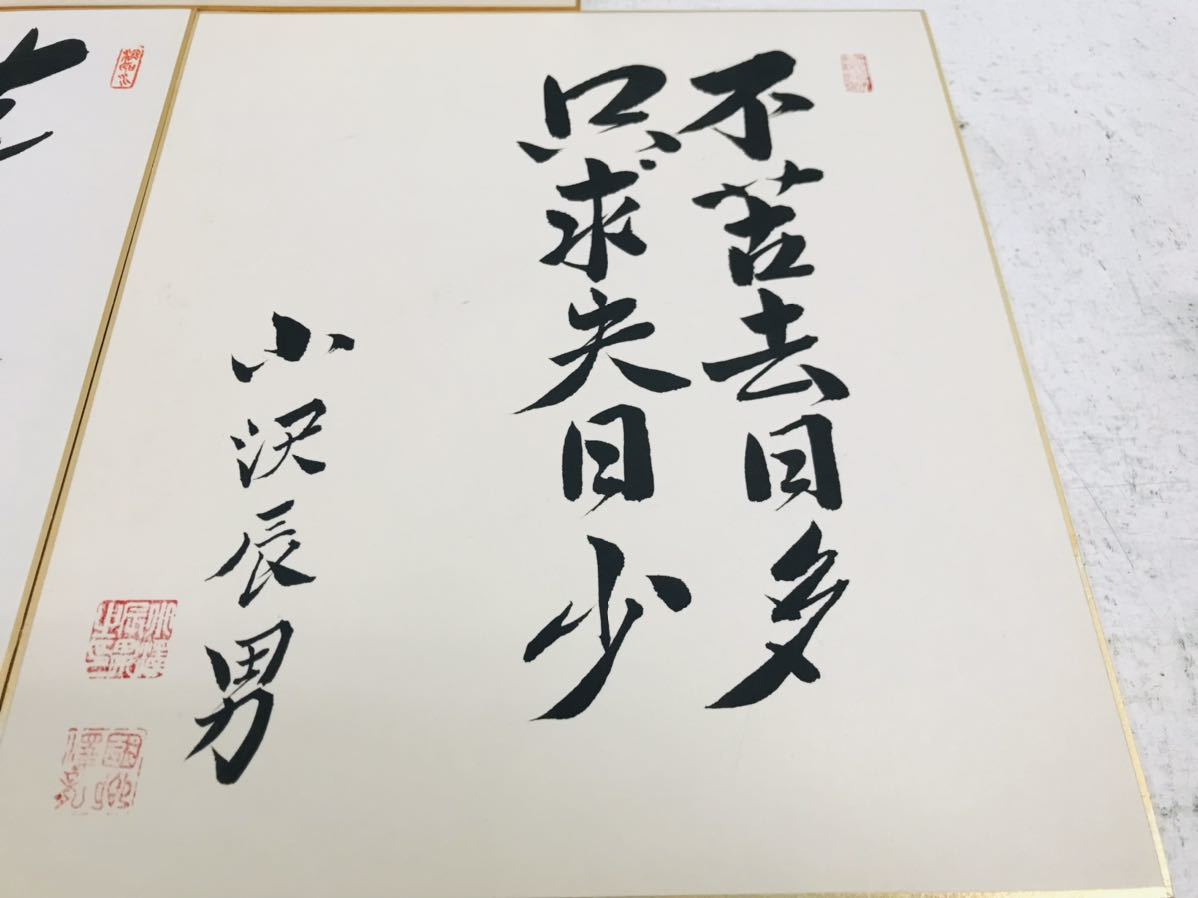 不苦去日多
只求失日少
小沢辰男